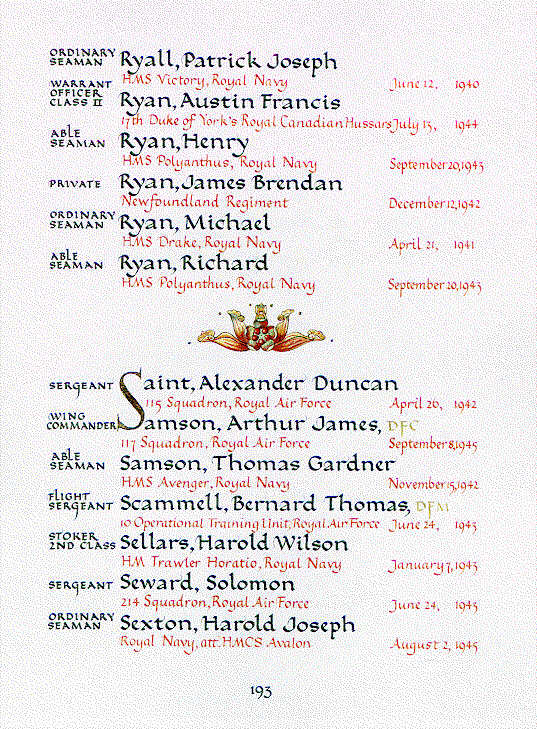 ORDINARY SEAMAN Ryall, Patrick Joseph
HMS Victory, Royal Navy June 12, 1940
WARRANT OFFICER CLASS II Ryan, Austin Francis
17th Duke of York's Royal Canadian Hussars July 13, 1944
ABLE SEAMAN Ryan, Henry
HMS Polyanthus, Royal Navy September 20, 1943
PRIVATE Ryan, James Brendan
Newfoundland Regiment December 12, 1942
ORDINARY SEAMAN Ryan, Michael
HMS Drake, Royal Navy April 21, 1941
ABLE SEAMAN Ryan, Richard
HMS Polyanthus, Royal Navy September 20, 1943
SERGEANT Saint, Alexander Duncan
115 Squadron, Royal Air Force April 26, 1942
WING COMMANDER Samson, Arthur James, DFC
117 Squadron, Royal Air Force September 8, 1945
ABLE SEAMAN Samson, Thomas Gardner
HMS Avenger, Royal Navy November 15, 1942
FLIGHT SERGEANT Scammell, Bernard Thomas, DFM
10 Operational Training Unit, Royal Air Force June 24, 1943
STOKER 2ND CLASS Sellars, Harold Wilson
HM Trawler Horatio, Royal Navy January 7, 1943
SERGEANT Seward, Solomon
214 Squadron, Royal Air Force June 24, 1943
ORDINARY SEAMAN Sexton, Harold Joseph
Royal Navy, att. HMCS Avalon August 2, 1945
193